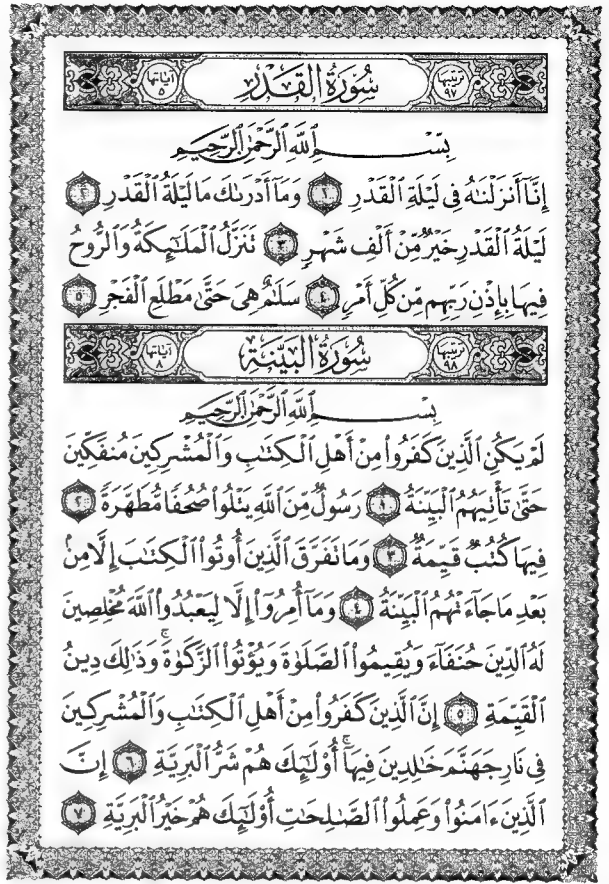 ترتيبها ٩٧ سُورَةُ القَدْرِ آياتها ٥
بِسْمِ اللَّهِ الرَّحْمَٰنِ الرَّحِيمِ
إِنَّا أَنزَلْنَاهُ فِي لَيْلَةِ الْقَدْرِ ١ وَمَا أَدْرَىٰكَ مَا لَيْلَةُ الْقَدْرِ ٢
لَيْلَةُ الْقَدْرِ خَيْرٌ مِّنْ أَلْفِ شَهْرٍ ٣ تَنَزَّلُ الْمَلَٰئِكَةُ وَالرُّوحُ
فِيهَا بِإِذْنِ رَبِّهِم مِّن كُلِّ أَمْرٍ ٤ سَلَٰمٌ هِيَ حَتَّىٰ مَطْلَعِ الْفَجْرِ ٥
ترتيبها ٩٨ سُورَةُ البَيِّنَةِ آياتها ٨
بِسْمِ اللَّهِ الرَّحْمَٰنِ الرَّحِيمِ
لَمْ يَكُنِ الَّذِينَ كَفَرُوا۟ مِنْ أَهْلِ الْكِتَٰبِ وَالْمُشْرِكِينَ مُنفَكِّينَ
حَتَّىٰ تَأْتِيَهُمُ الْبَيِّنَةُ ١ رَسُولٌ مِّنَ اللَّهِ يَتْلُوا۟ صُحُفًا مُّطَهَّرَةً ٢
فِيهَا كُتُبٌ قَيِّمَةٌ ٣ وَمَا تَفَرَّقَ الَّذِينَ أُوتُوا۟ الْكِتَٰبَ إِلَّا مِنۢ
بَعْدِ مَا جَاءَتْهُمُ الْبَيِّنَةُ ٤ وَمَا أُمِرُوا۟ إِلَّا لِيَعْبُدُوا۟ اللَّهَ مُخْلِصِينَ
لَهُ الدِّينَ حُنَفَاءَ وَيُقِيمُوا۟ الصَّلَوٰةَ وَيُؤْتُوا۟ الزَّكَوٰةَ ۚ وَذَٰلِكَ دِينُ
الْقَيِّمَةِ ٥ إِنَّ الَّذِينَ كَفَرُوا۟ مِنْ أَهْلِ الْكِتَٰبِ وَالْمُشْرِكِينَ
فِي نَارِ جَهَنَّمَ خَٰلِدِينَ فِيهَا ۚ أُو۟لَٰئِكَ هُمْ شَرُّ الْبَرِيَّةِ ٦ إِنَّ
الَّذِينَ ءَامَنُوا۟ وَعَمِلُوا۟ الصَّٰلِحَٰتِ أُو۟لَٰئِكَ هُمْ خَيْرُ الْبَرِيَّةِ ٧